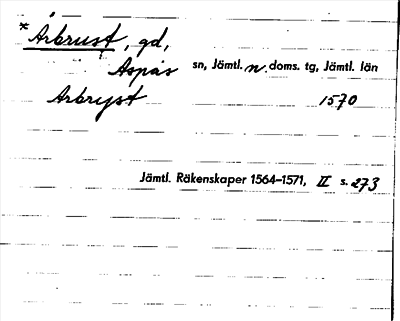 *Årbrust, gd,
Aspås sn, Jämtl. n. doms. tg, Jämtl. län
Arbryst 1570
Jämtl. Räkenskaper 1564–1571, II s. 273